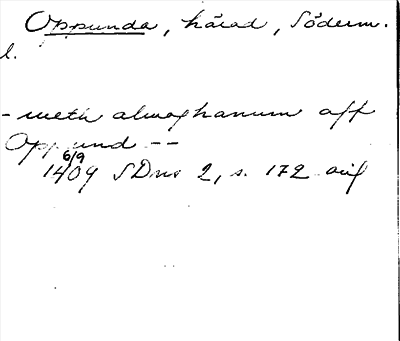 Oppunda, härad, Söderm.
l.
- meth almoghanum aff
Oppund --
6/9
1409 SDns 2, s. 172 avs